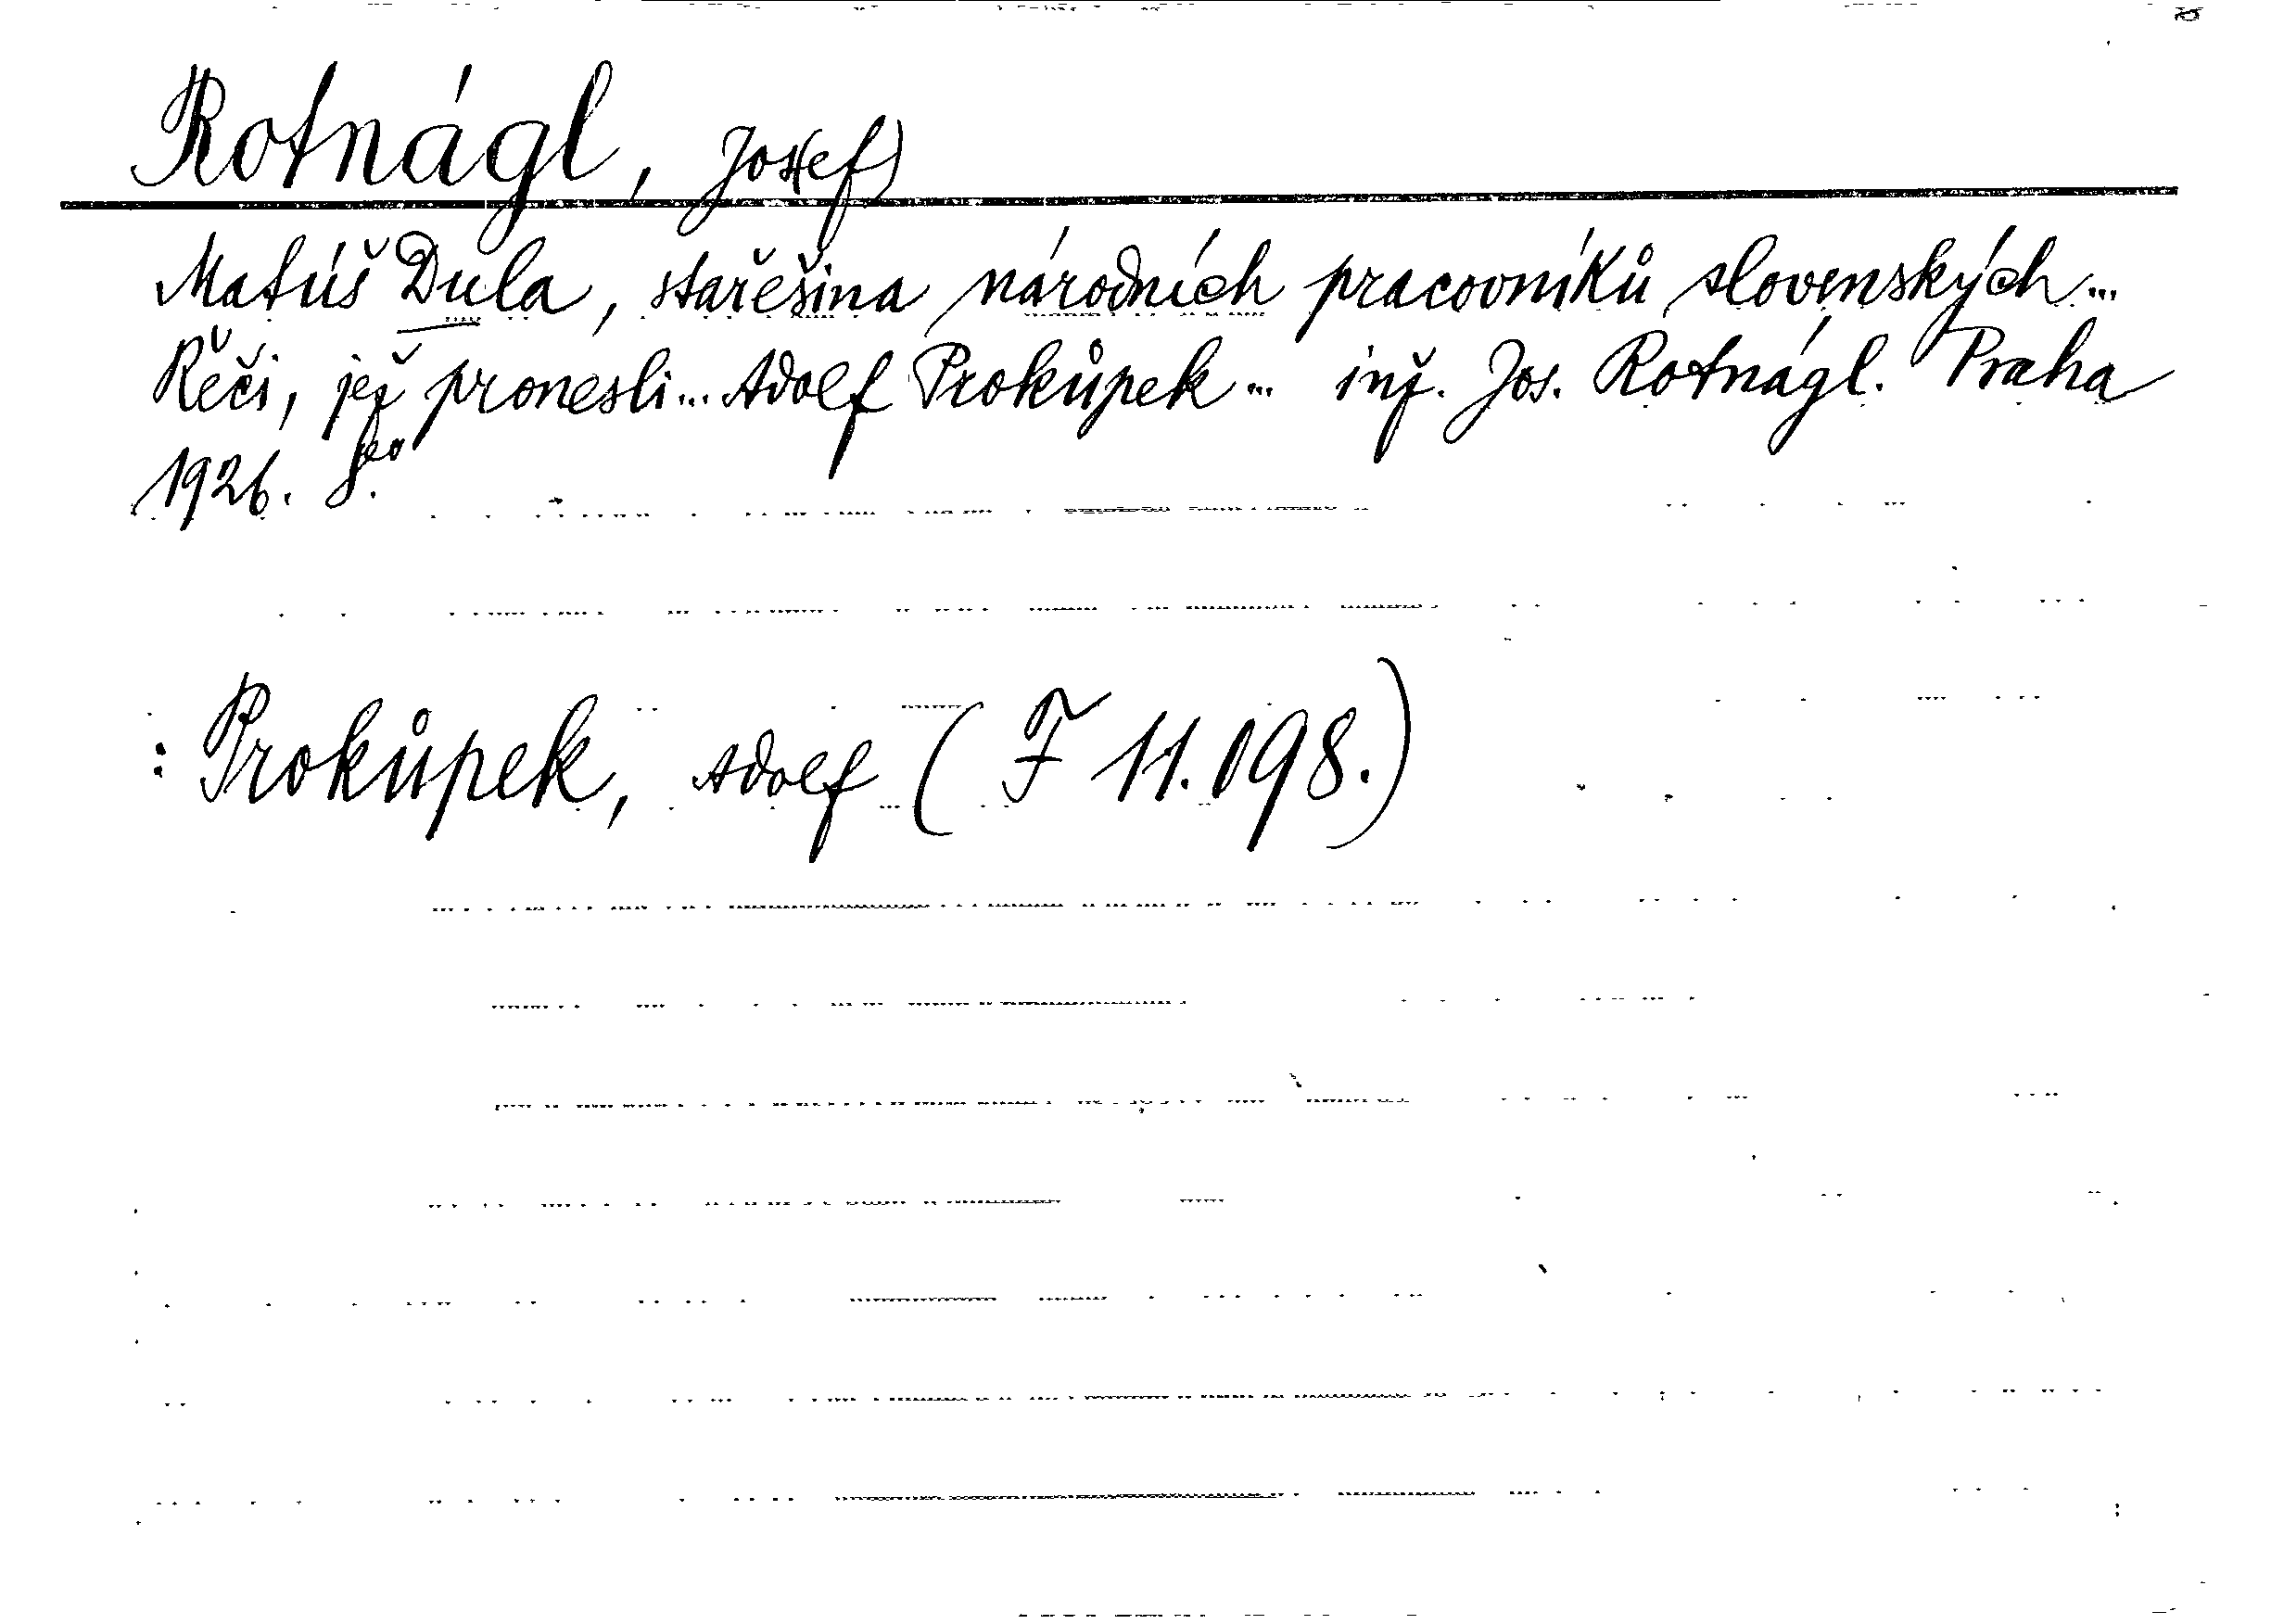 Rotnágl, Jos(ef)
Matúš Dula, stařešina národních pracovníků slovenských...
Řeči, jež pronesli... Adolf Prokůpek... inž. Jos. Rotnágl. Praha
1926. 8°.
: Prokůpek, Adolf (F 11.198.)